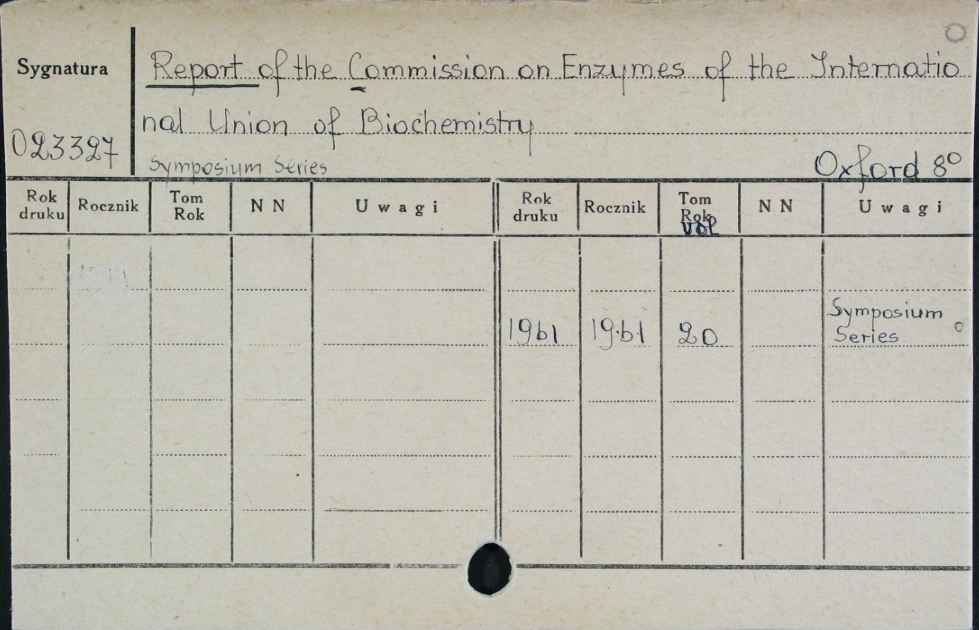 Sygnatura
Report of the Commission on Enzymes of the Internatio
nal Union of Biochemistry
023327
Symposium Series
Oxford 8°
Rok druku Rocznik Tom Rok N N Uwagi Rok druku Rocznik Tom Rok vol N N Uwagi
1961 1961 20 Symposium
Series